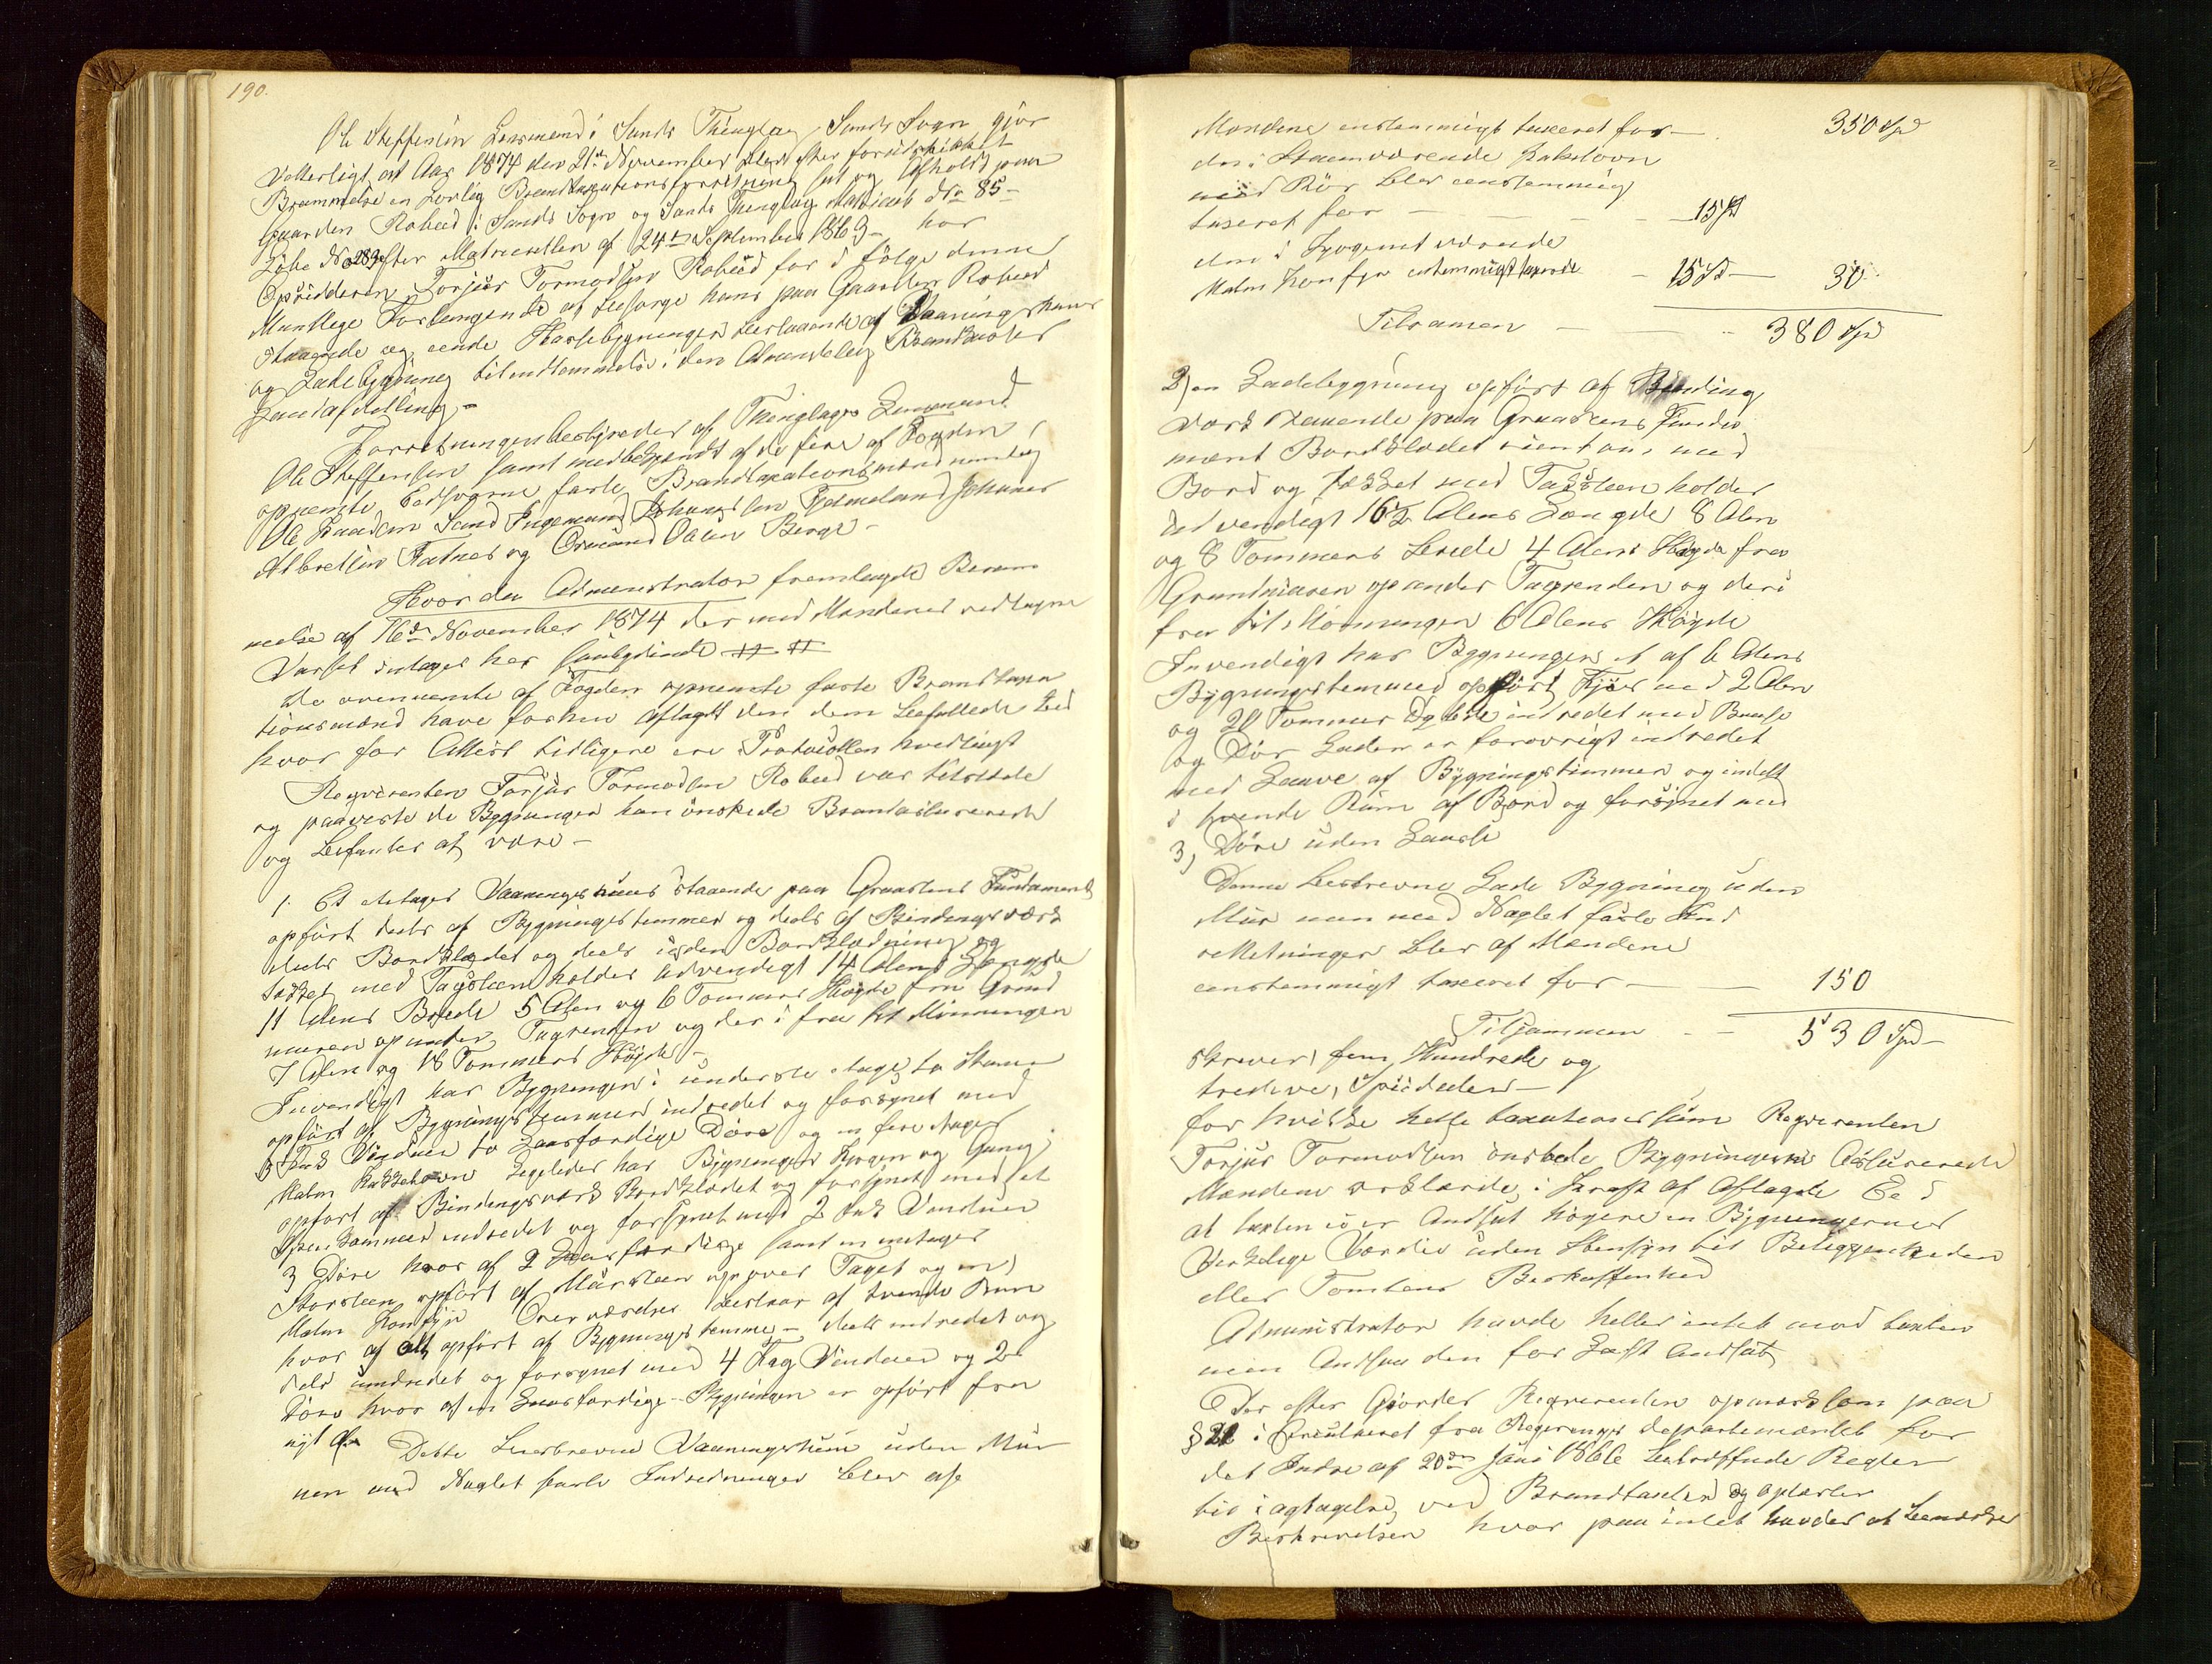 190.
Ole Steffensen Lensmand i Sands Thinglag Sands Sogn gjør
Vetterligt at Aar 1874 den 21de November blev efter forudskikket
Brammelse en Lovlig Brandtaxationsforretning sat og Afholdt paa
Gaarden Rabeed i Sands Sogn og Sands Thinglag Matricul No 85
Løbe No 283 efter Matricullen af 24de September 1863 - hor
Opsidderen Torjus Tormodsen Rabeed for i følge denne
Muntlege Forlengende at besørge hans paa Gaarden Rabeed
staaende og eende Huusebygninger bestaaende af Vaaningshuus
og Ladebygning bliindlemmede i den Almindelig Brandkasses
Landafdelling -
Forretningen bestyredes af Thinglagets Lensmand
Ole Steffensen samt medbekjendt af de fire af Fogden
opnevnte Eedsvorne faste Brandtaxationsmænd nemlig
Ole Knudsen Sand Ingemund Johannesen Tjelmeland Johannes
Albretsen Fatnes og Osmund Olsen Berge -
Hvorda Administrator fremlagde Beram
melse af 16de November 1874 der med Mændenes vedtagne
Varsel intages her saalydende # #
De ovennevnte af Fogden opnevnte faste Brandtaxa
tionsmænd have forhen aflagt den dem Befallede Eed
hvor for Attest tidligere ere Protocollen hvedligt
Reqvirenten Torjus Tormodsen Rabeed var tilstede
og paaviste de Bygninger han ønskede Brandasurerede
og befantes at være -
1. Et etetages Vaaningshuus staaende paa Graasteens Fundament
opført deels af Bygningstemmer og deels af Bindingsværk
deels Bordklædet og deels uden Bordklædning og
tækket med Tagsteen holder udvendigt 14 Alens Længde
11 Alens Brede 5 Alen og 6 Tommers Høyde fra Grund
muren op under Tagrenden og der i fra til Mønningen
7 Alen og 18 Tommers Høyde -
Indvendigt har Bygningen i underste etage to Stuer
opført af Bygningstemmer indredet og forsynet med
6 Fack Vinduer to Laasfærdige Døre og en fire etages
Malm Kakkelovn Ligeledes har Bygningen Kjøken og Gang
opført af Bindingsværk Bordklædet og forsynet med et
Spisekammer indredet og forsynet med 2 Fack Vinduer
3 Døre hvor af 2 Laasfærdige samt en eneetages
Skorsteen opført af Mursteen op over Taget og en
Malm Komfyr Overværelset bestaar af tvende Rum
hvor af alt opført af Bygningstemmer - deels indredet og
deels uindredet og forsynet med 4 Fag Vinduer og 2
Døre hvor af en Laasfærdige - Bygningen er opført fra
nyt af Dette beskrevne Vaaningshuus uden Mur
men med Naglet faste Indredninger blev afe
Mændene enstemmigt taxeret for - 350 Spd
den i Stuenværende Kakelovn
med Rør blev eenstemmig
taxeret for - - - 15 Spd
den i Kjøgenet værende
Malm Komfyr enstemmigt taxerede - 15 Spd - 30
Tilsamen - - 380 Spd
2) en Ladebygning opført af Binding
værk staaende paa Graasteens Funda
mænt Bordklædet rientom, med
Bord og tækket med Tagsteen holder
udvendigt 16½ Alens Længde 8 Alen
og 8 Tommers brede 4 Alens Høyde fra
Grundmuren op under Tagrenden og deri
fra til Mønningen 6 Alens Høyde
Indvendigt har Bygningen et af 6 Alens
Bygningstemmer opført Fjøs med 2 Alen
og 20 Tommer Dybde indredet med Baase
og Dør Laden er forøvrigt indredet
med Laave af Bygningstimmer og indelt
i tvende Rum af Bord og forsynet med
3, Døre uden Laase
Denne beskrevne Lade Bygning uden
Mur men med Naglet faste Ind
retninger blev af Mændene
eenstemmigt taxeret for - - 150
Tilsammen - - 530 Spd -
skriver, fem Hundrede og
tredeve, Speciedaler -
for hvilke hele taxationssum Reqvirenten
Torjus Tormodsen ønskede Bygningerne Asurerede
Mændene erklærde, i Kraft af Aflagde Eed
at taxten ei er Andsat høyere en Bygningernes
Verkelige Værdie uden Hensyn til Beliggenheden
eller Tomtens Beskaffenhed
Administrator havde heller intet mod taxten
men Andsaa den for Lavt Andsat
Der efter Gjordes Reqvirenten opmærksom paa
§ 21 i Circulæret fra Regerings Departementet for
det Indre af 20de Juni 1866 betræffende Regler
til iagtagelse ved Brandtaxter og oplæstes
Beskrivelsen hvor paa intet havdes at bemærke